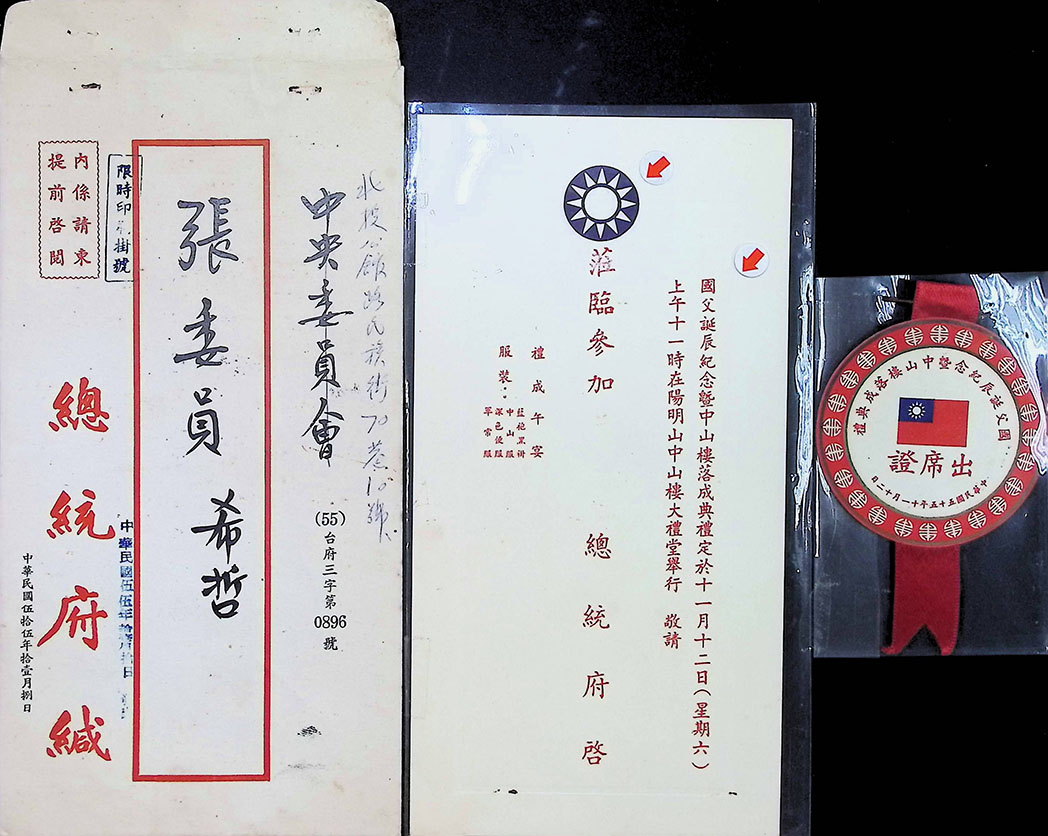 北投公館路民族街70巷10號
中央委員會
(55)台府三字第0896號
張委員 希哲
限時印刷掛號
內係請柬
提前啓閱
總統府緘
中華民國伍伍年拾壹月拾日
中華民國伍拾伍年拾壹月捌日
國父誕辰紀念暨中山樓落成典禮定於十一月十二日(星期六)
上午十一時在陽明山中山樓大禮堂舉行 敬請
蒞臨參加
總統府啓
禮成午宴
服裝：
藍袍黑褂
中山服
深色便服
軍常服
國父誕辰紀念暨中山樓落成典禮
出席證
中華民國五十五年十一月十二日